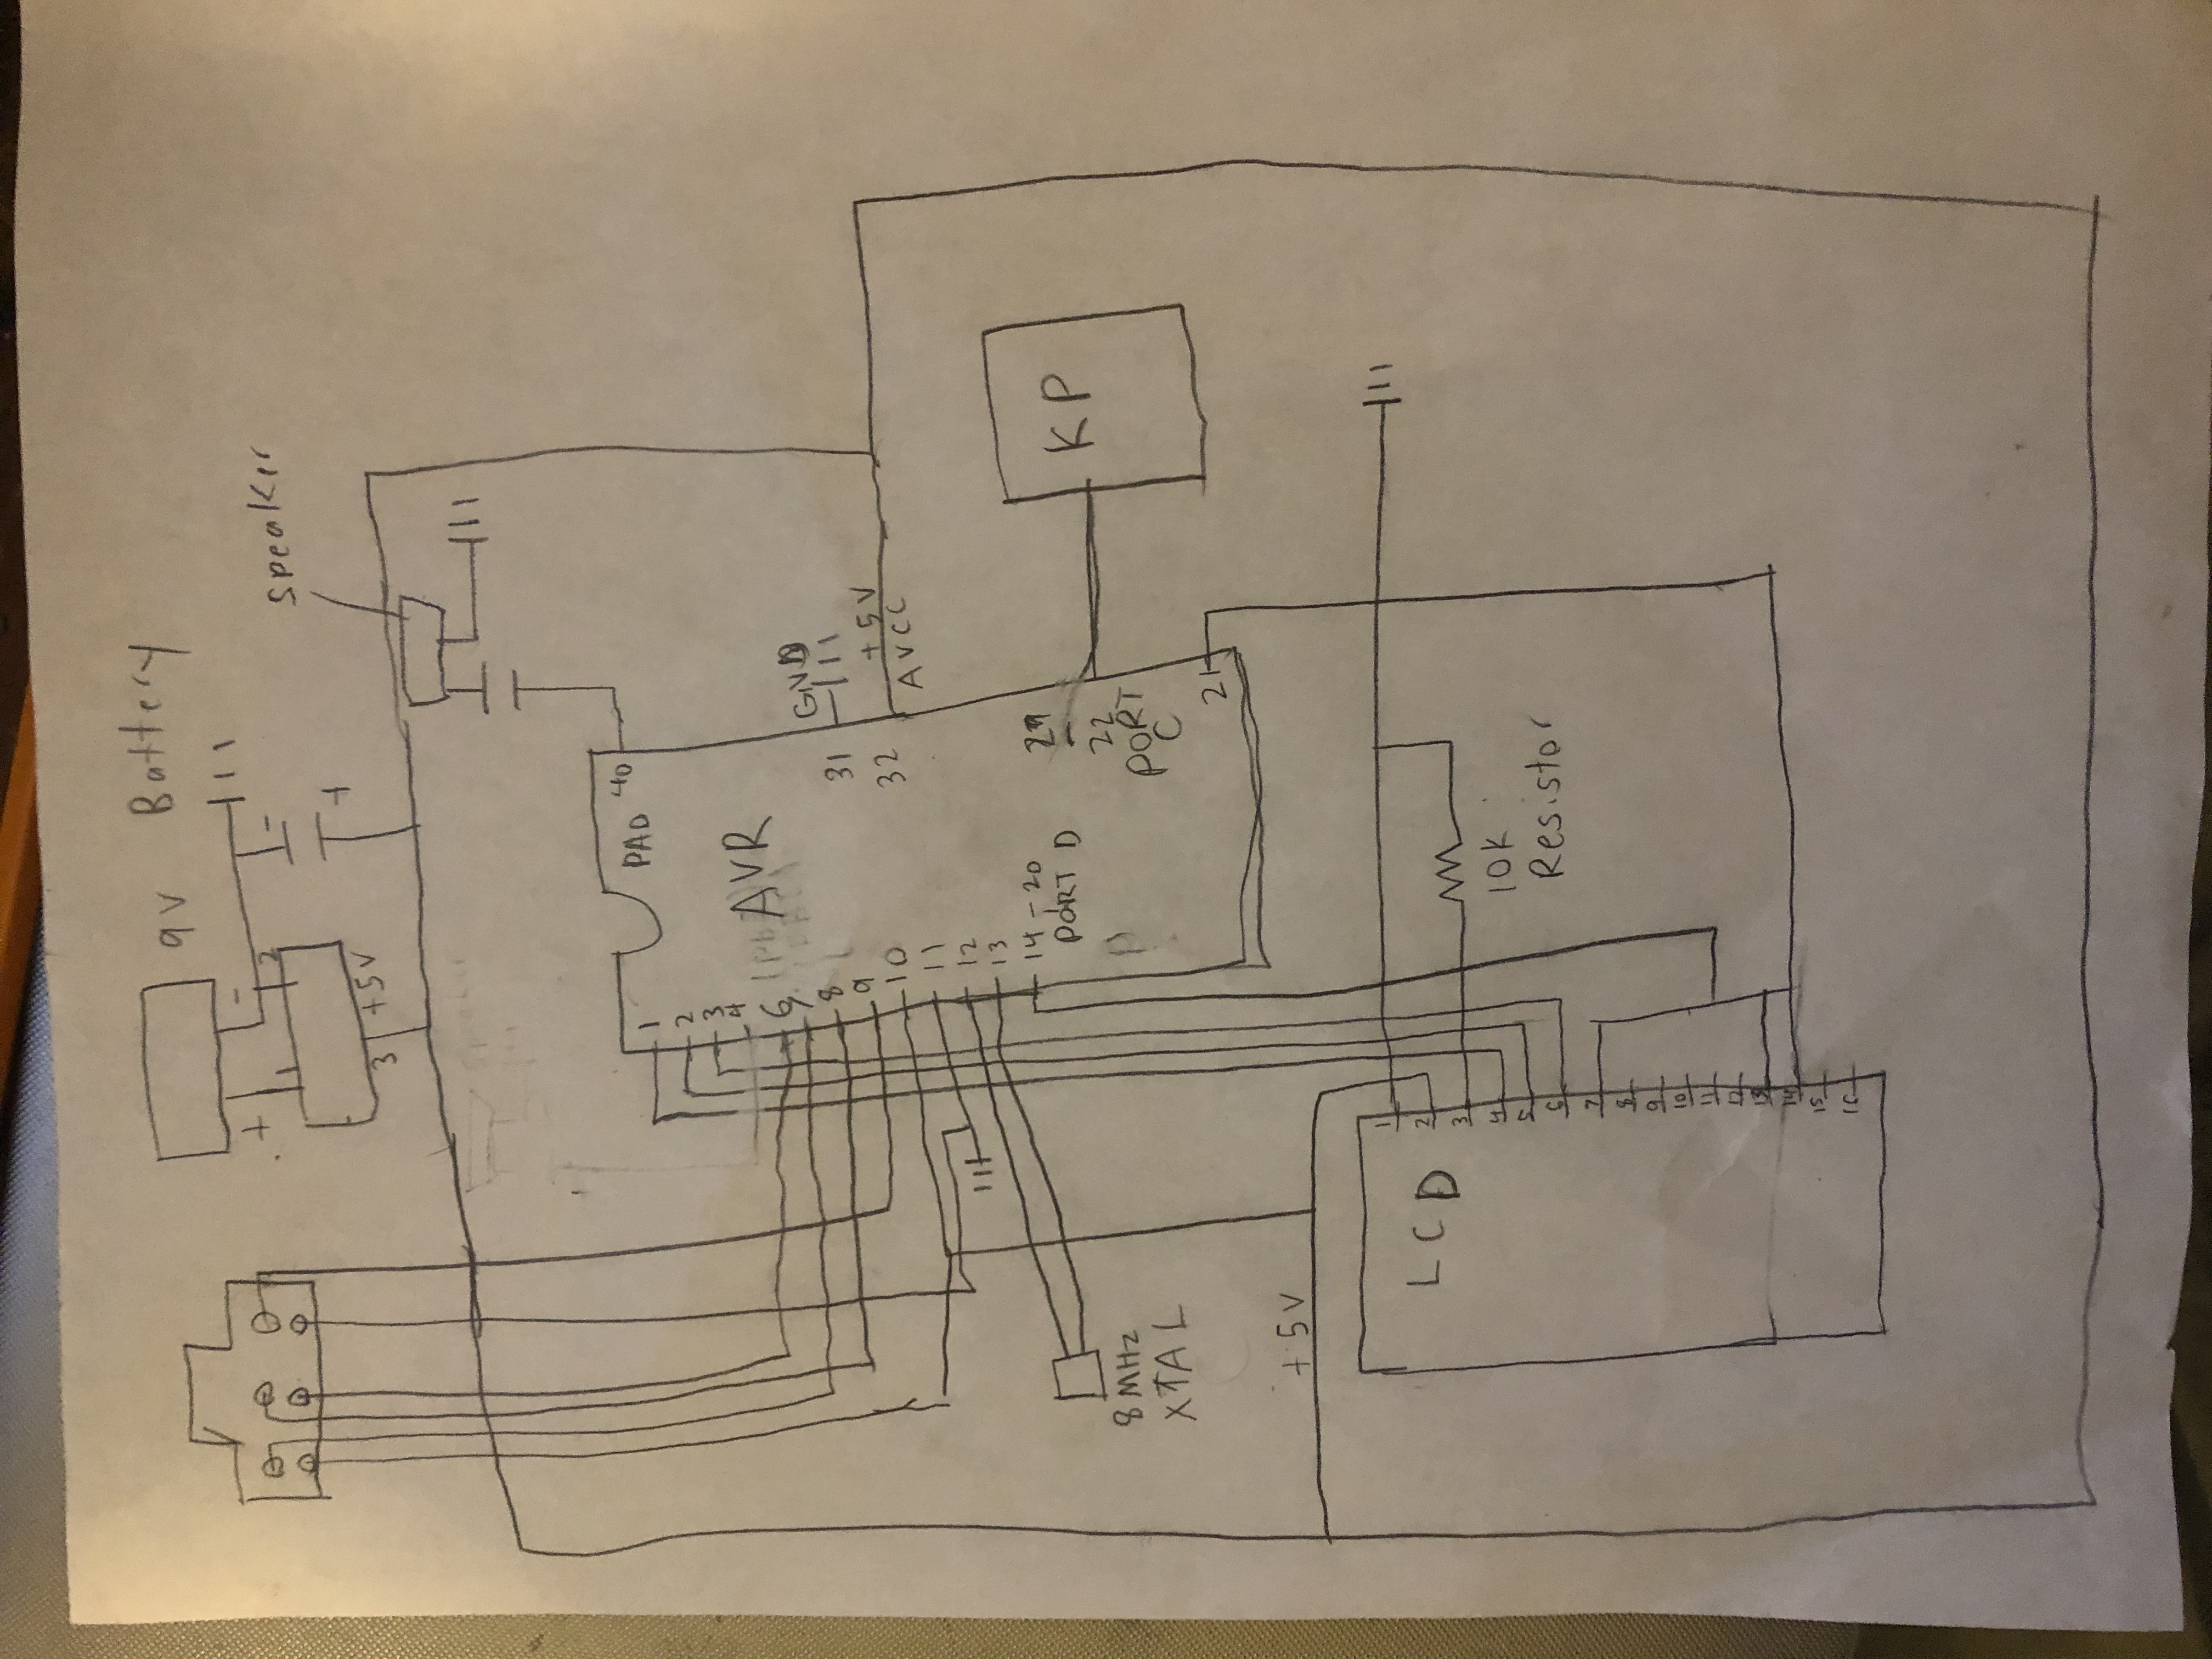 9V Battery
+ -
1 2
-
+
speaker
3 +5V
PAD 40
1
2
3
4
AVR
6
7
8
9
10
11
12
13
14-20
PORT D
GND
31
+5V
32
AVCC
29
-
22
PORT
C
21
KP
8MHz
XTAL
+5V
LCD
1
2
3
4
5
6
7
8
9
10
11
15
16
10K
Resistor